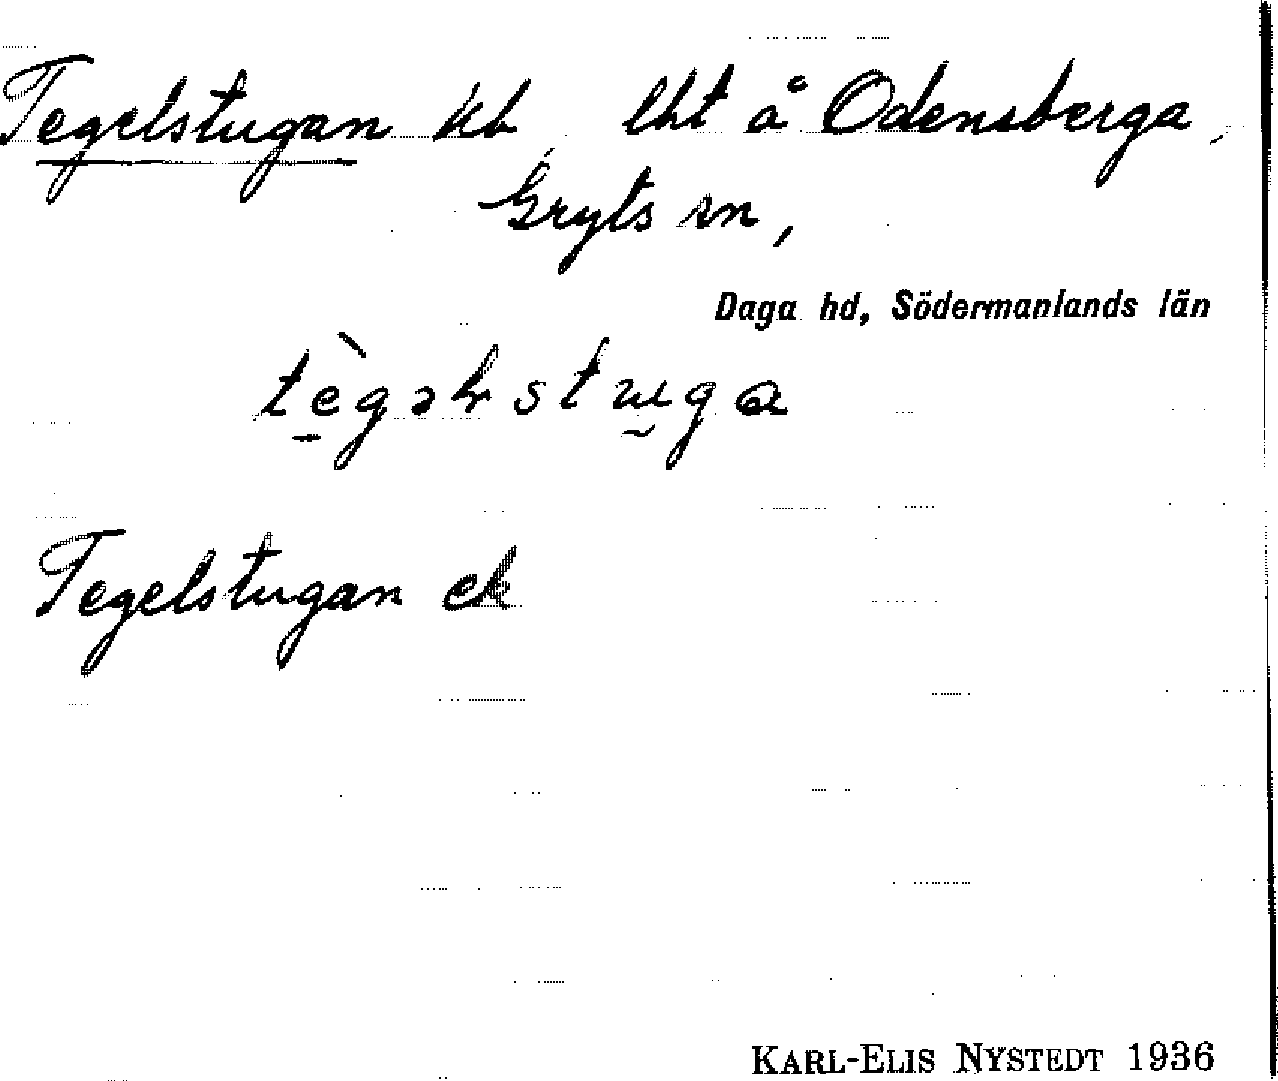 Tegelstugan kb, lht å Odensberga,
Gryts sn,
Daga hd, Södermanlands län
Tegelstugan ek
KARL-ELIS NYSTEDT 1936